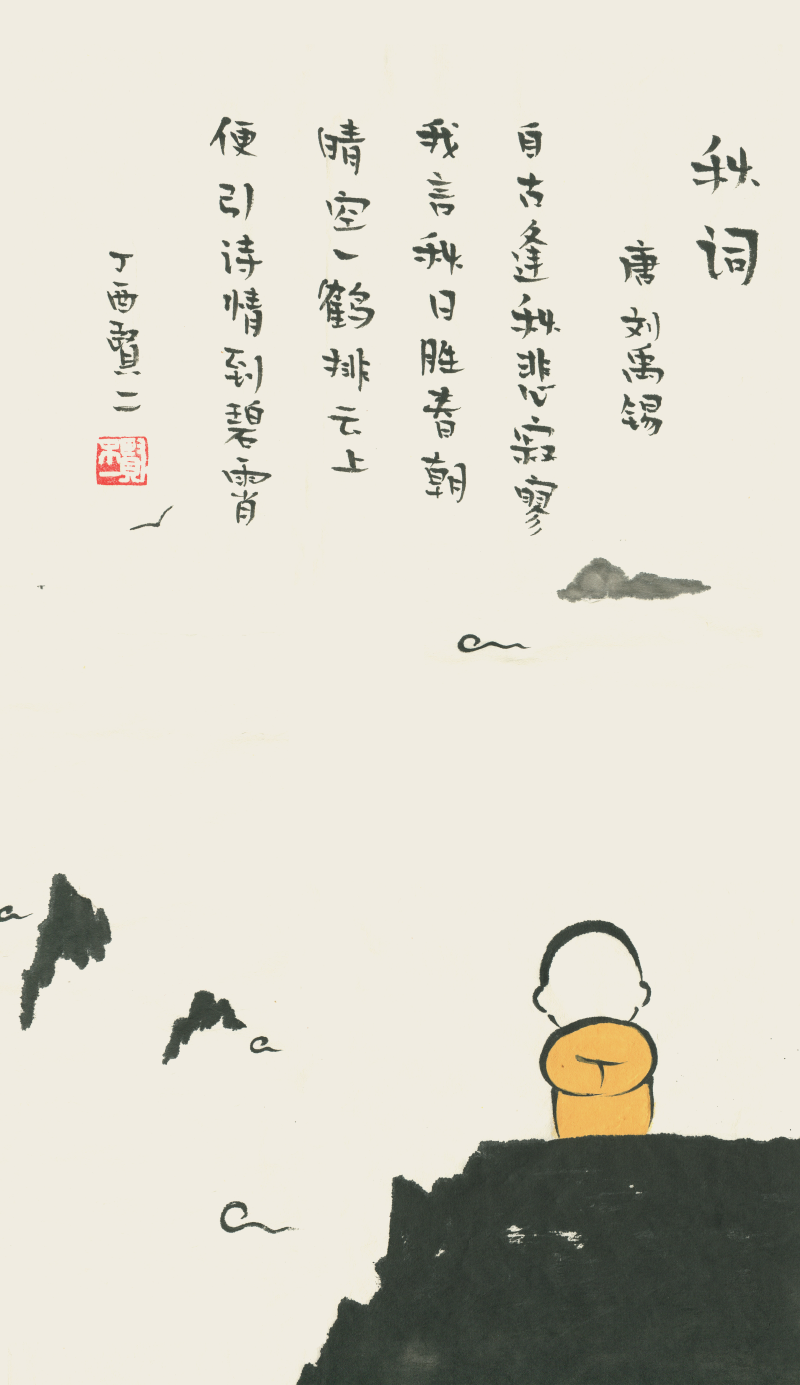 秋词
唐 刘禹锡
自古逢秋悲寂寥
我言秋日胜春朝
晴空一鹤排云上
便引诗情到碧霄
丁酉賢二